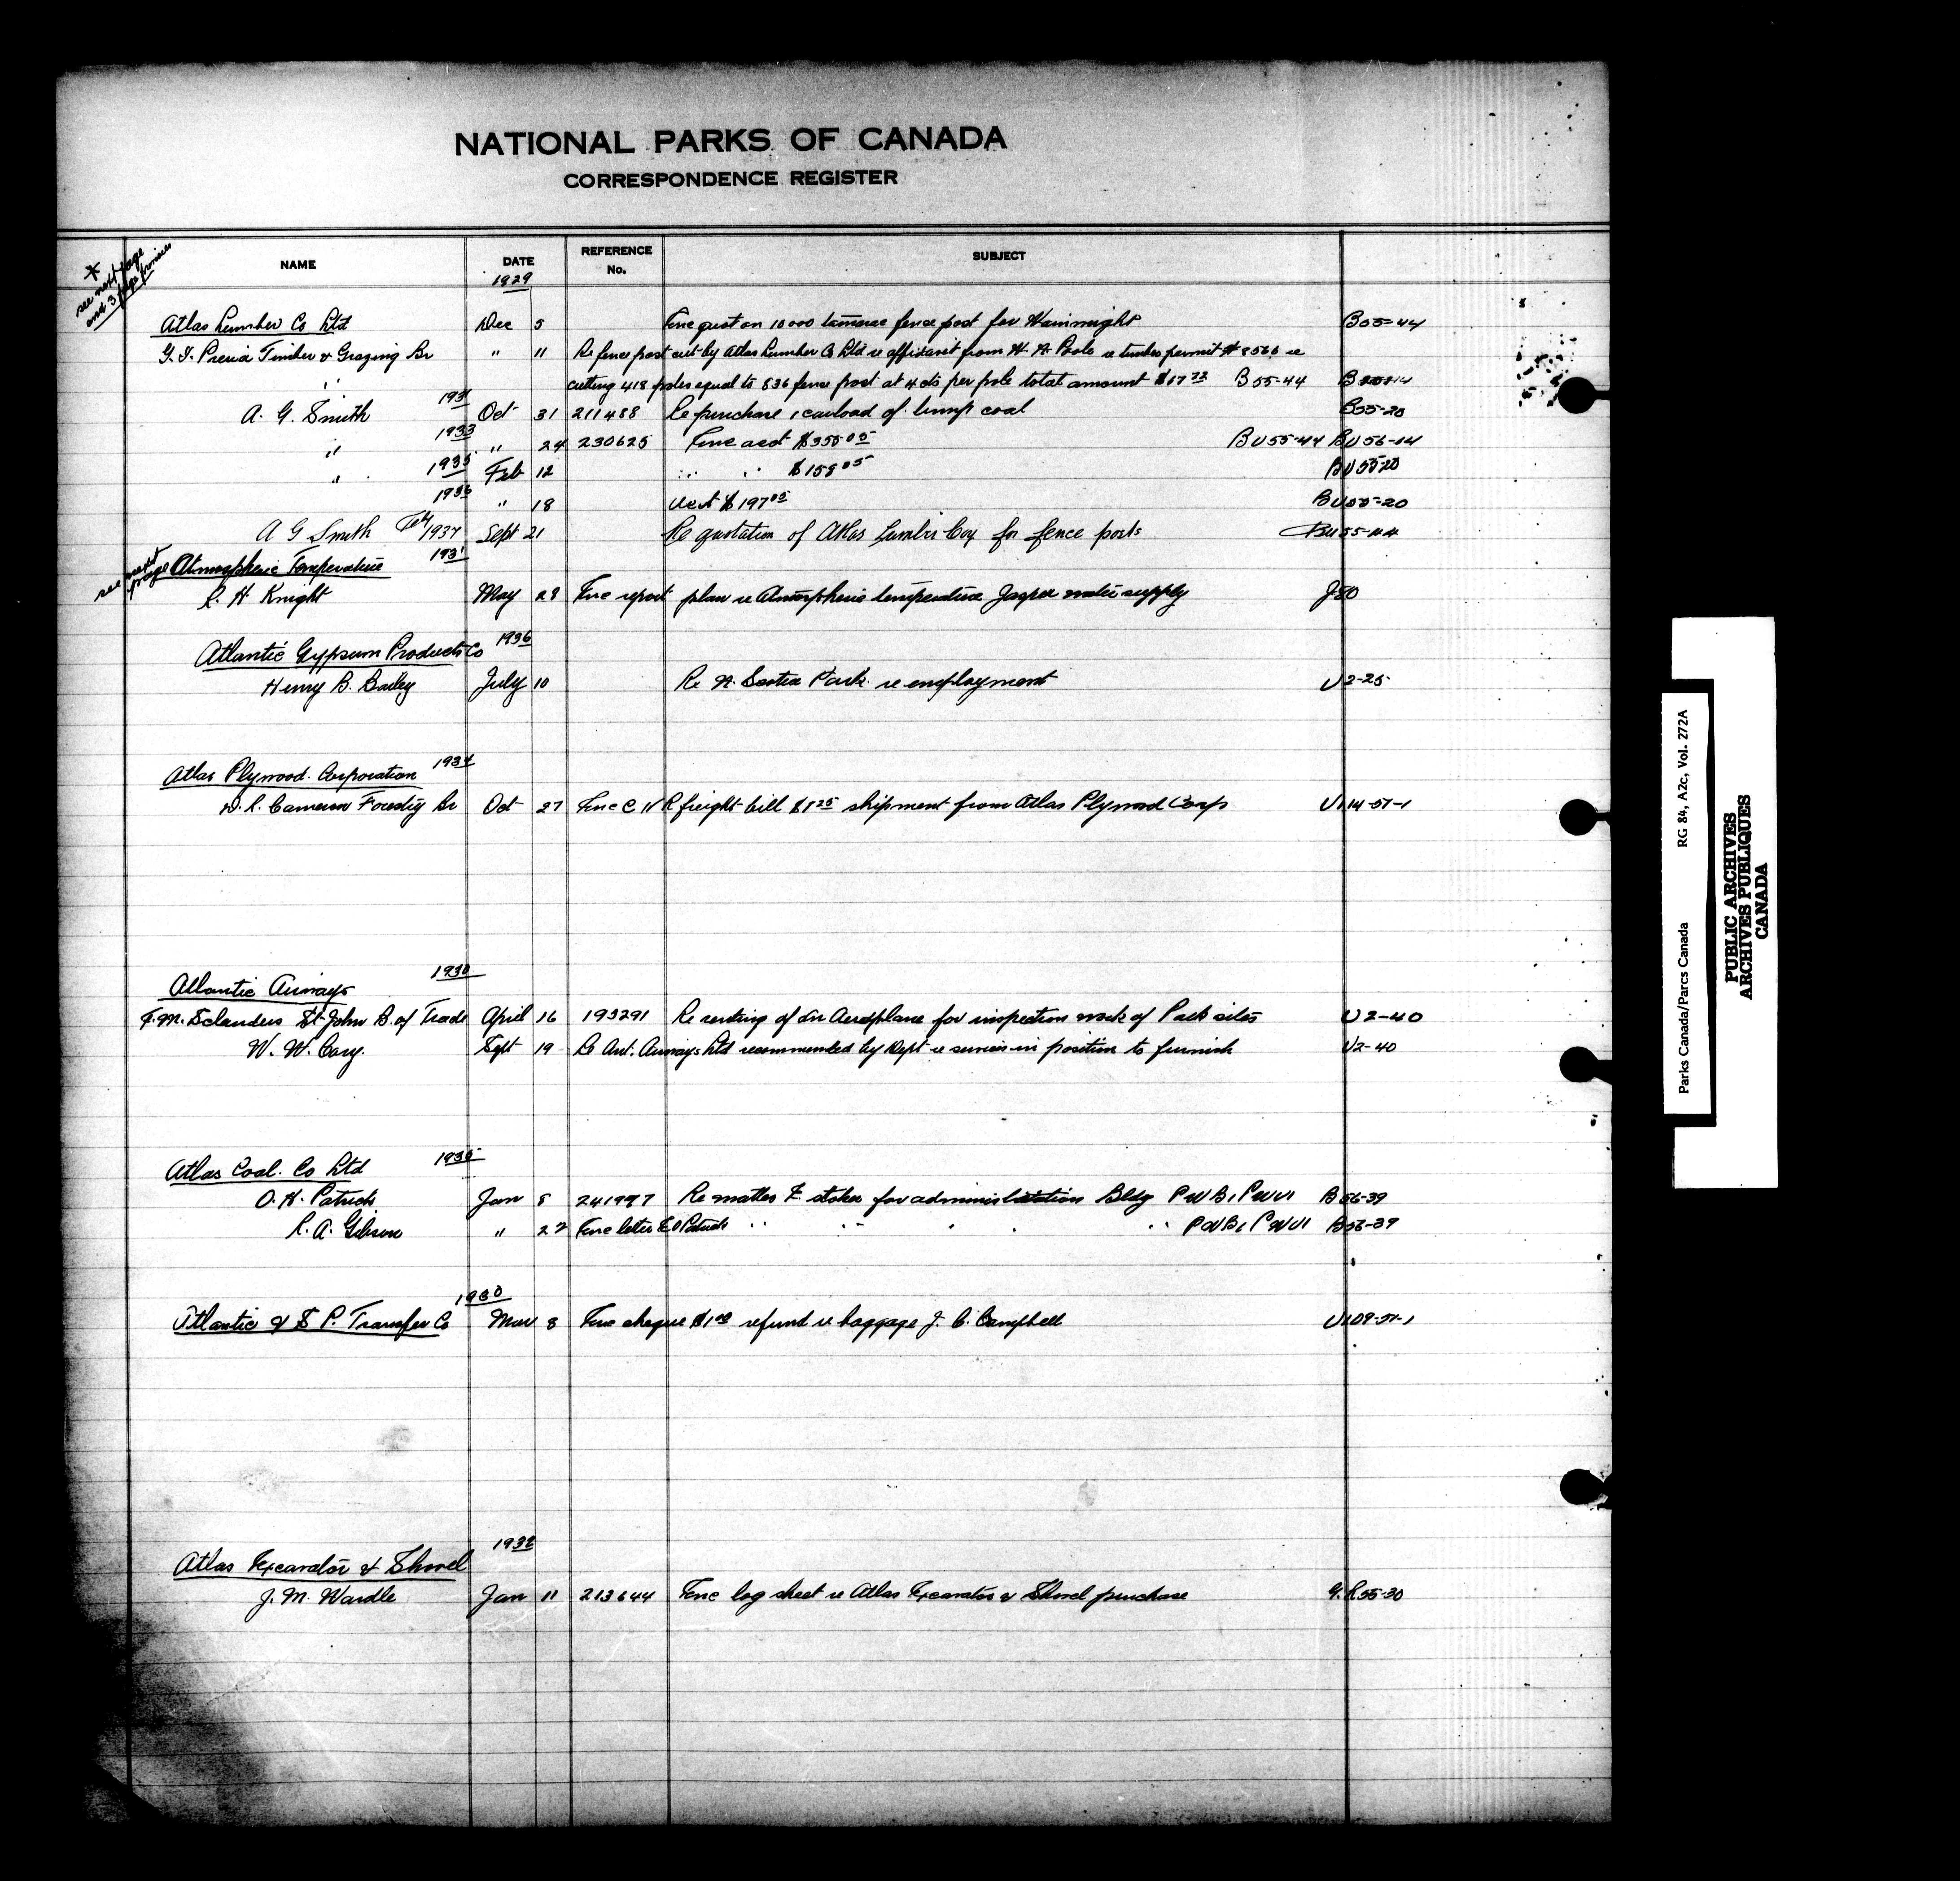 NATIONAL PARKS OF CANADA
CORRESPONDENCE REGISTER
* see next page and 3 page
NAME DATE REFERENCE No. SUBJECT
1929
Atlas Lumber Co Ltd Dec 5 Enc quot on 10000 tamarac fence post for Wainwright B55-44
Timber & Grazing Br " 11 Re fence post cut by Atlas Lumber Co Ltd re affidavit from H A Poole re timber permit # re
" cutting 418 poles equal to 836 fence post at 4 cts per pole total amount $17 72 B55-44
1931
A. G. Smith Oct 31 211488 Re purchase 1 carload of lump coal B55-20
1933
" " 24 230625 Enc acct $355 05 BU55-44 BU56-14
" 1935 Feb 12 " " $158 05 BU55-20
1936
" 18 acct $197 05 BU55-20
A G Smith 1937 Sept 21 Re quotation of Atlas Lumber Coy for fence posts BU55-44
see next page Atmospheric Temperature 1931
R. H Knight May 28 Enc report plan re Atmospheric temperature Jasper water supply J80
Atlantic Gypsum Products Co 1936
Henry B. Bailey July 10 Re N. Scotia Park re employment U2-25
Atlas Plywood Corporation 1934
D. R. Cameron Forestry Br Oct 27 Enc C N R freight bill shipment from Atlas Plywood Corp U114-57-1
1930
Atlantic Airways
F.M. Sclanders St John B. of Trade April 16 193291 Re renting of an Aeroplane for inspection work of Park sites U2-40
W. W. Cory. Sept 19 Re Ant. Airways Ltd recommended by Dept re services in position to furnish U2-40
Atlas Coal. Co Ltd 1935
O. H. Patrick Jan 8 241997 Re matter E stoker for administration Bldg PWB1 PWU1 B56-39
R. A. Gibson " 22 Enc letter " " " " PWB1 PWU1 B56-39
1930
Atlantic & S P. Transfer Co Mar 8 Enc cheque $1 00 refund re baggage J. C. Campbell U109-57-1
1932
Atlas Excavator & Shovel
J. M. Wardle Jan 11 213644 Enc log sheet re Atlas Excavator & Shovel purchase G.R55-30
Parks Canada/Parcs Canada RG 84, A2c, Vol. 272A
PUBLIC ARCHIVES
ARCHIVES PUBLIQUES
CANADA